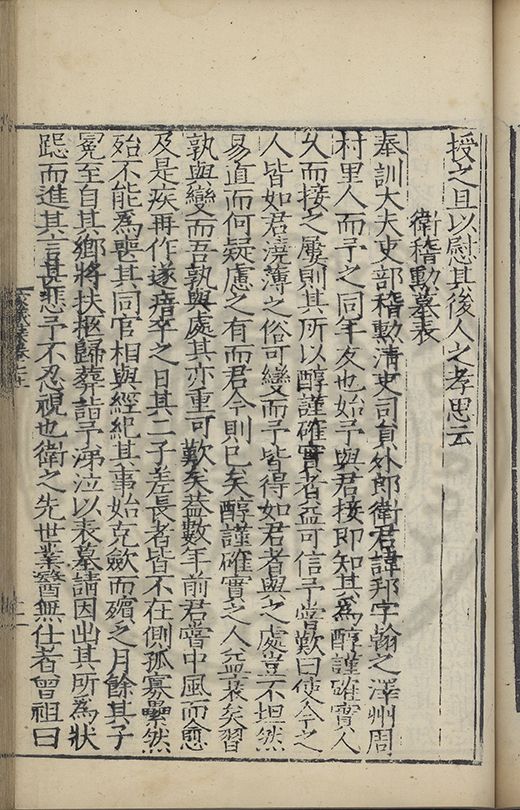 授之且以慰其後人之孝思云
衛稽勳墓表
奉訓大夫吏部稽勳清吏司員外郎衛君諱邦字翰之澤州周
村里人而予之同年友也始予與君接即知其為醇謹確實人
久而接之屢則其所以醇謹確實者益可信予嘗歎曰使今之
人皆如君澆薄之俗可變而予皆得如君者與之處豈不坦然
易直而何疑慮之有而君今則已矣醇謹確實之人益衰矣習
孰與變而吾孰與處其亦重可歎矣蓋數年前君嘗中風而愈
及是疾再作遂瘖卒之日其二子差長者皆不在側孤寡纍然
殆不能為喪其同官相與經紀其事始克斂而殯之月餘其子
冕至自其鄉將扶柩歸葬詣予涕泣以表墓請因出其所為狀
跽而進其言甚悲予不忍視也衛之先世業醫無仕者曾祖曰